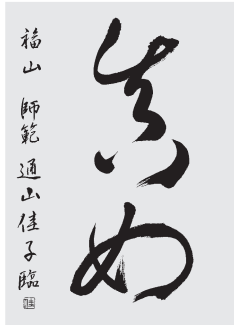 真如
福山 師範 通山佳子臨
佳